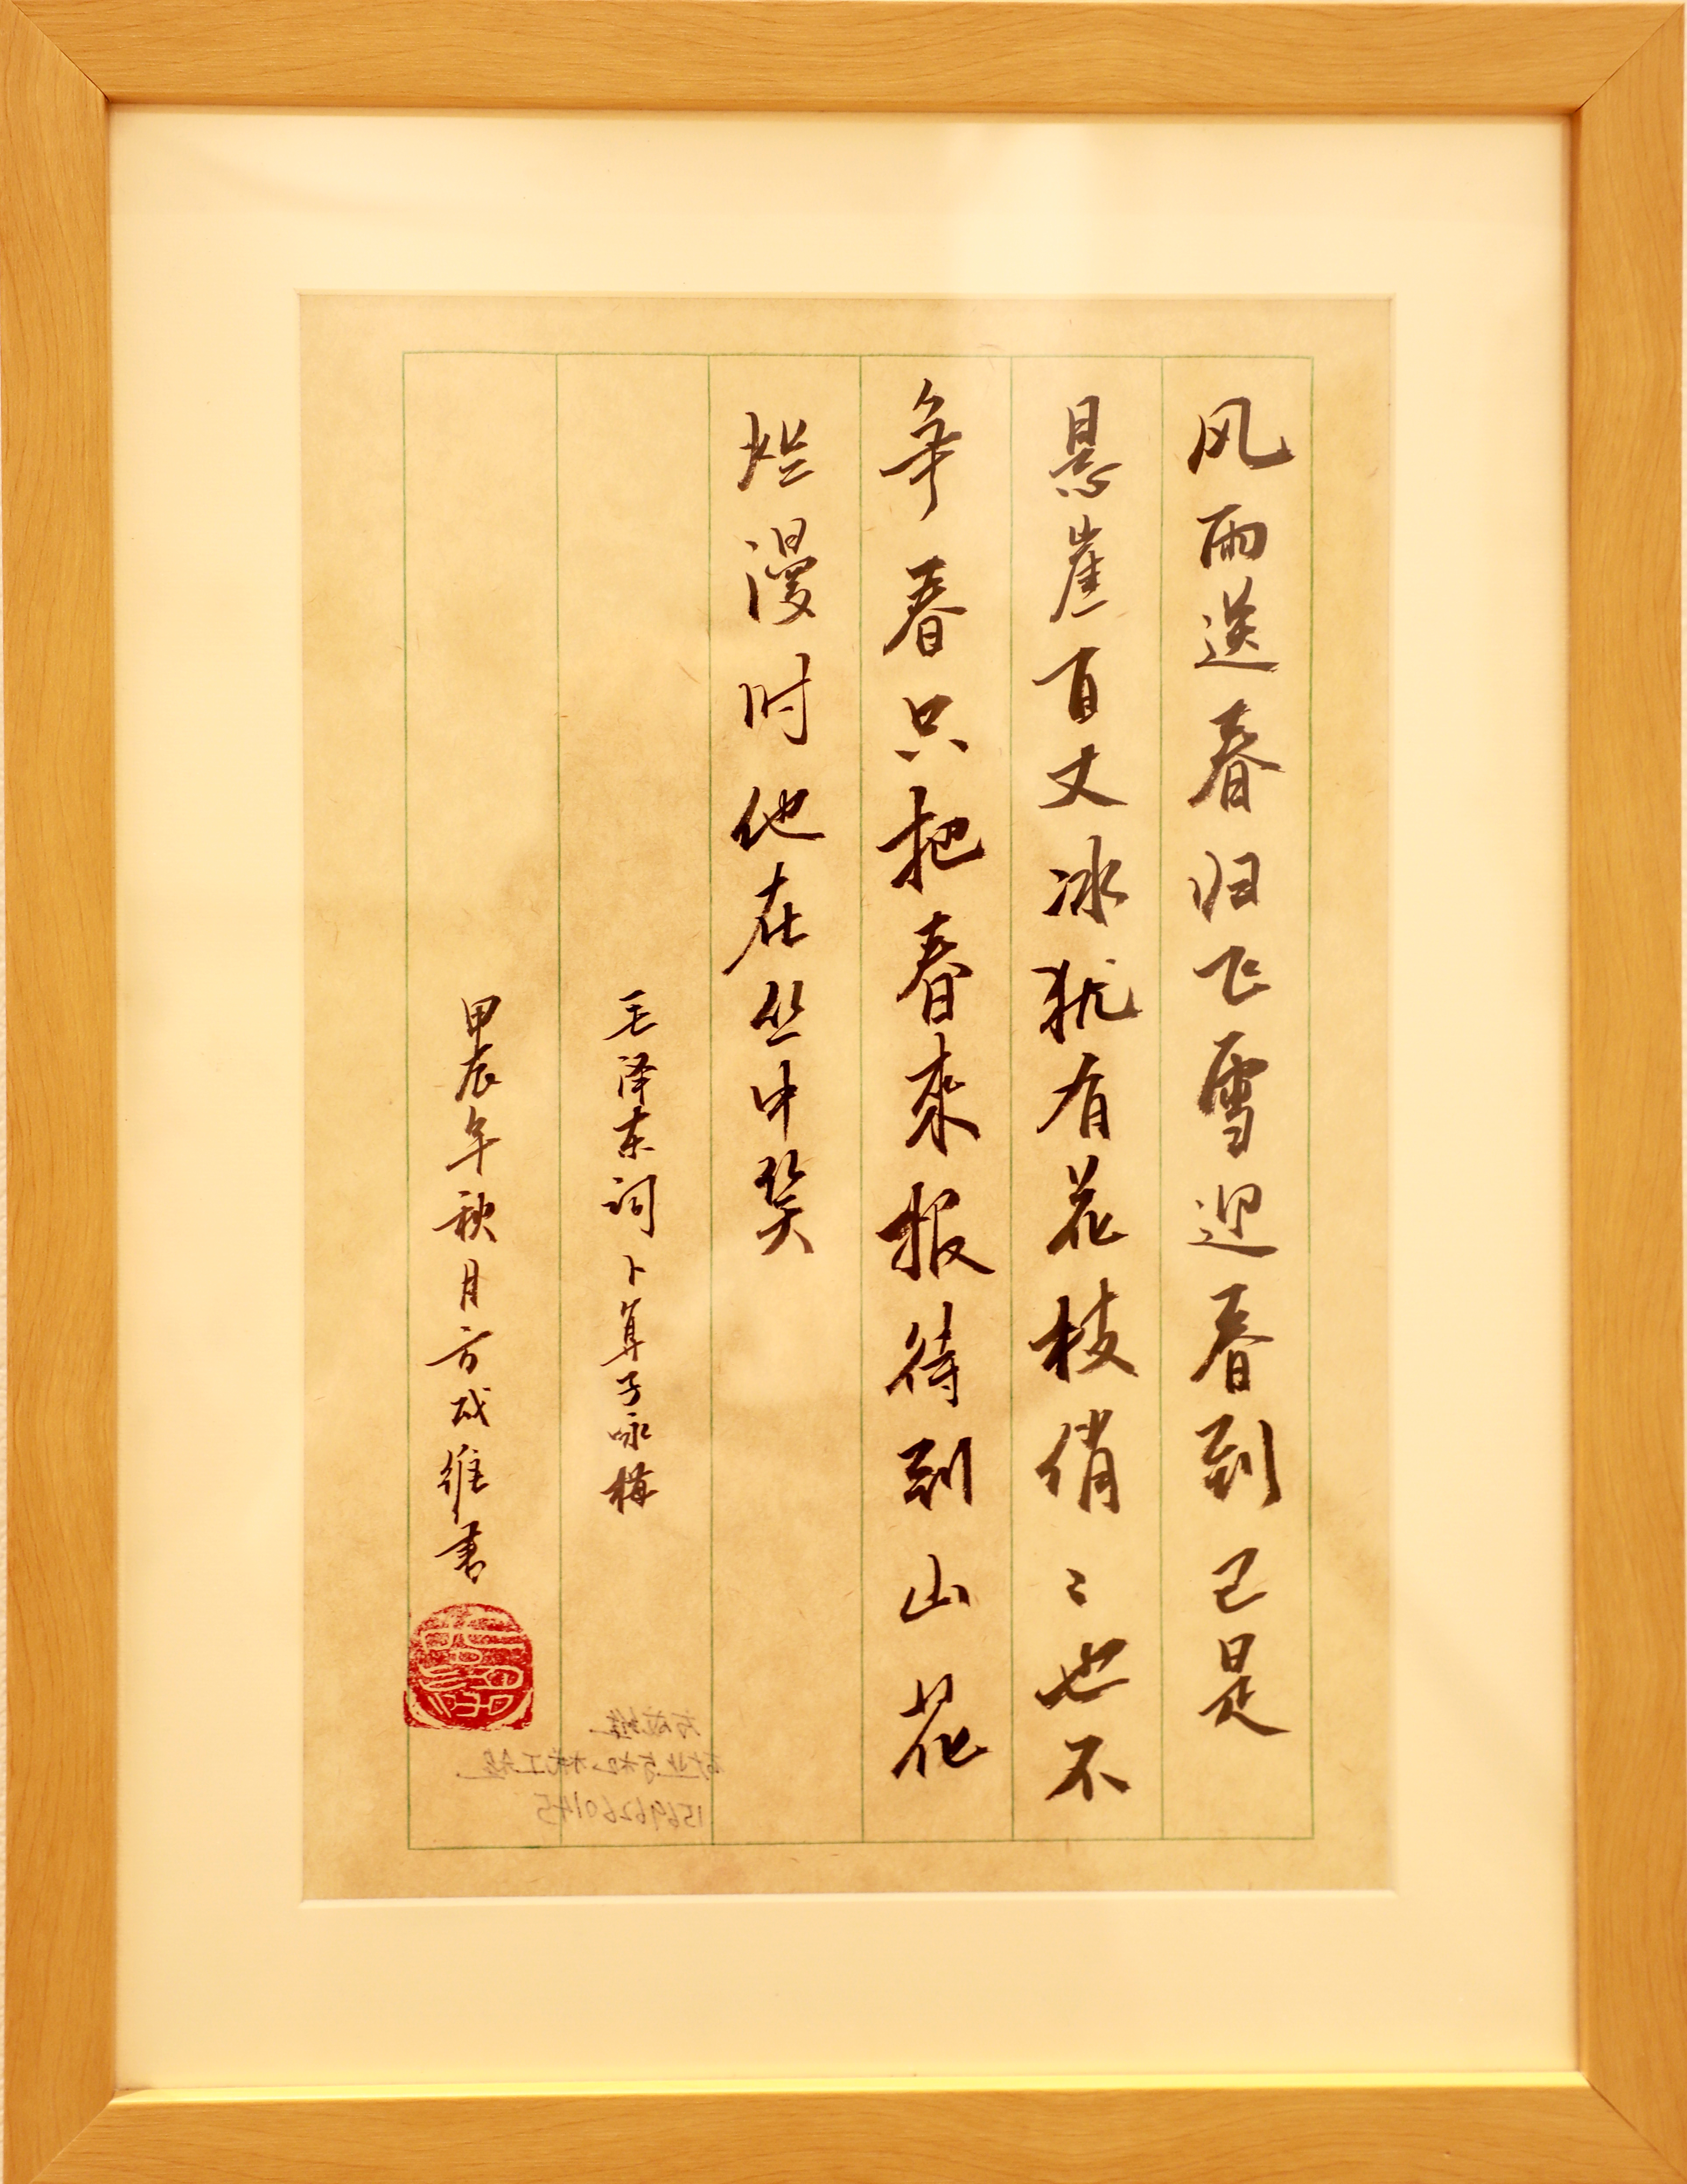 风雨送春归飞雪迎春到已是
悬崖百丈冰犹有花枝俏〻也不
争春只把春来报待到山花
烂漫时他在丛中笑
毛泽东词卜算子咏梅
甲辰年秋月方成维書
方成维
15696260145